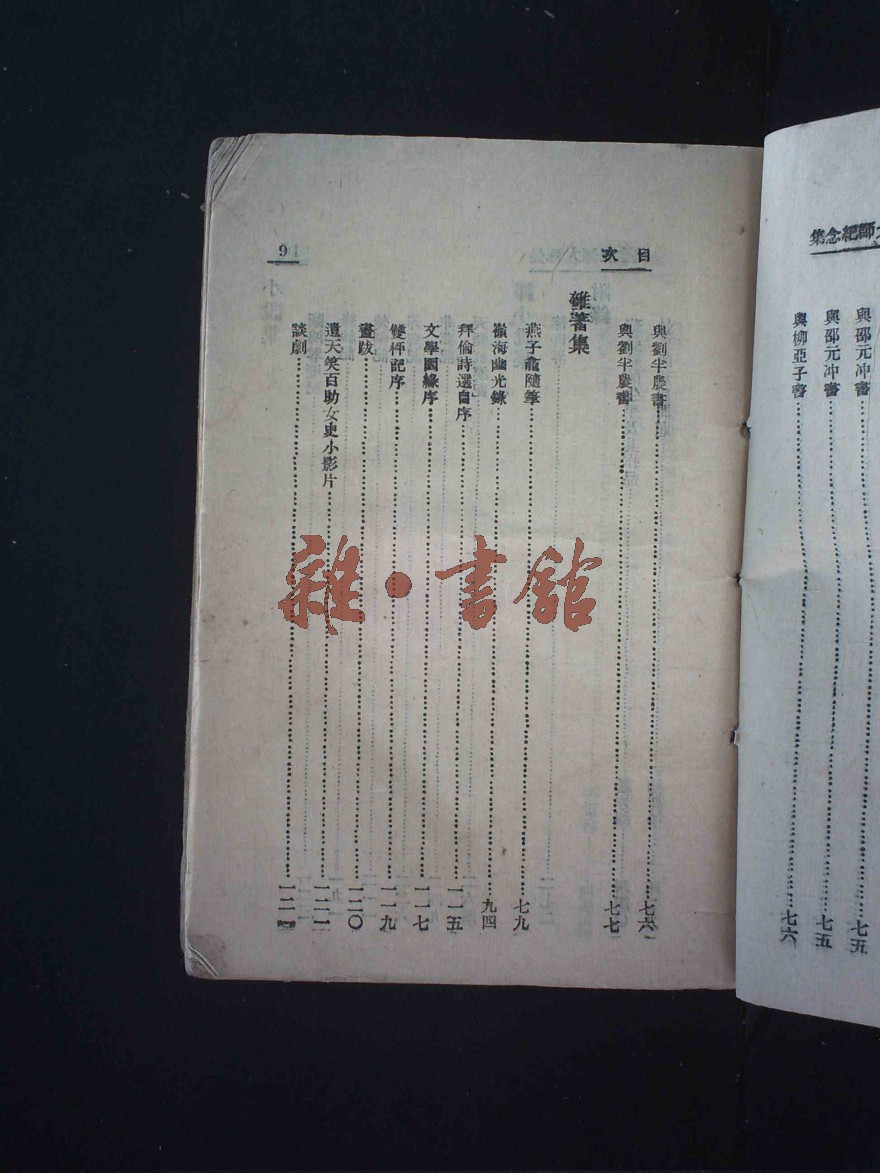 大師紀念集
與邵元冲書……七五
與邵元冲書……七五
與柳亞子書……七六
目次
9
與劉半農書……七六
與劉半農書……七七
雜著集
燕子龕隨筆……七九
嶺海幽光錄……九四
拜倫詩選自序……一一五
文學因緣序……一一七
雙枰記序……一一九
畫跋……一二〇
遺天笑百助女史小影片……一二二
談劇……一二
雜·書館